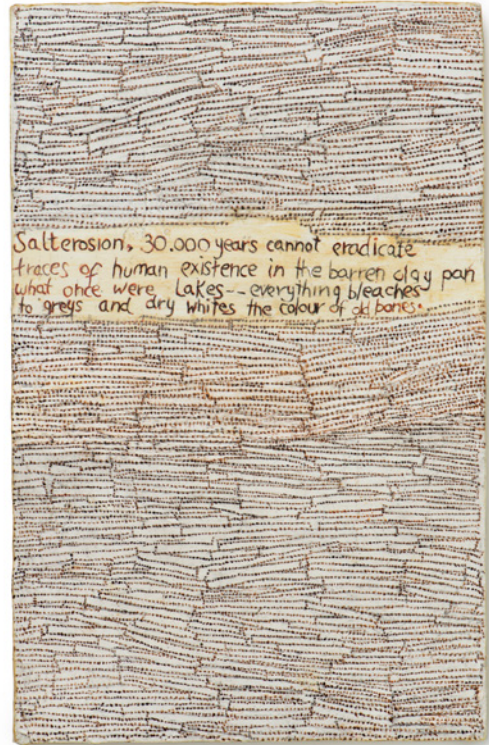 Salterosion, 30.000 years cannot eradicate
traces of human existence in the barren clay pan
what once were lakes -- everything bleaches
to greys and dry whites the colour of old bones.